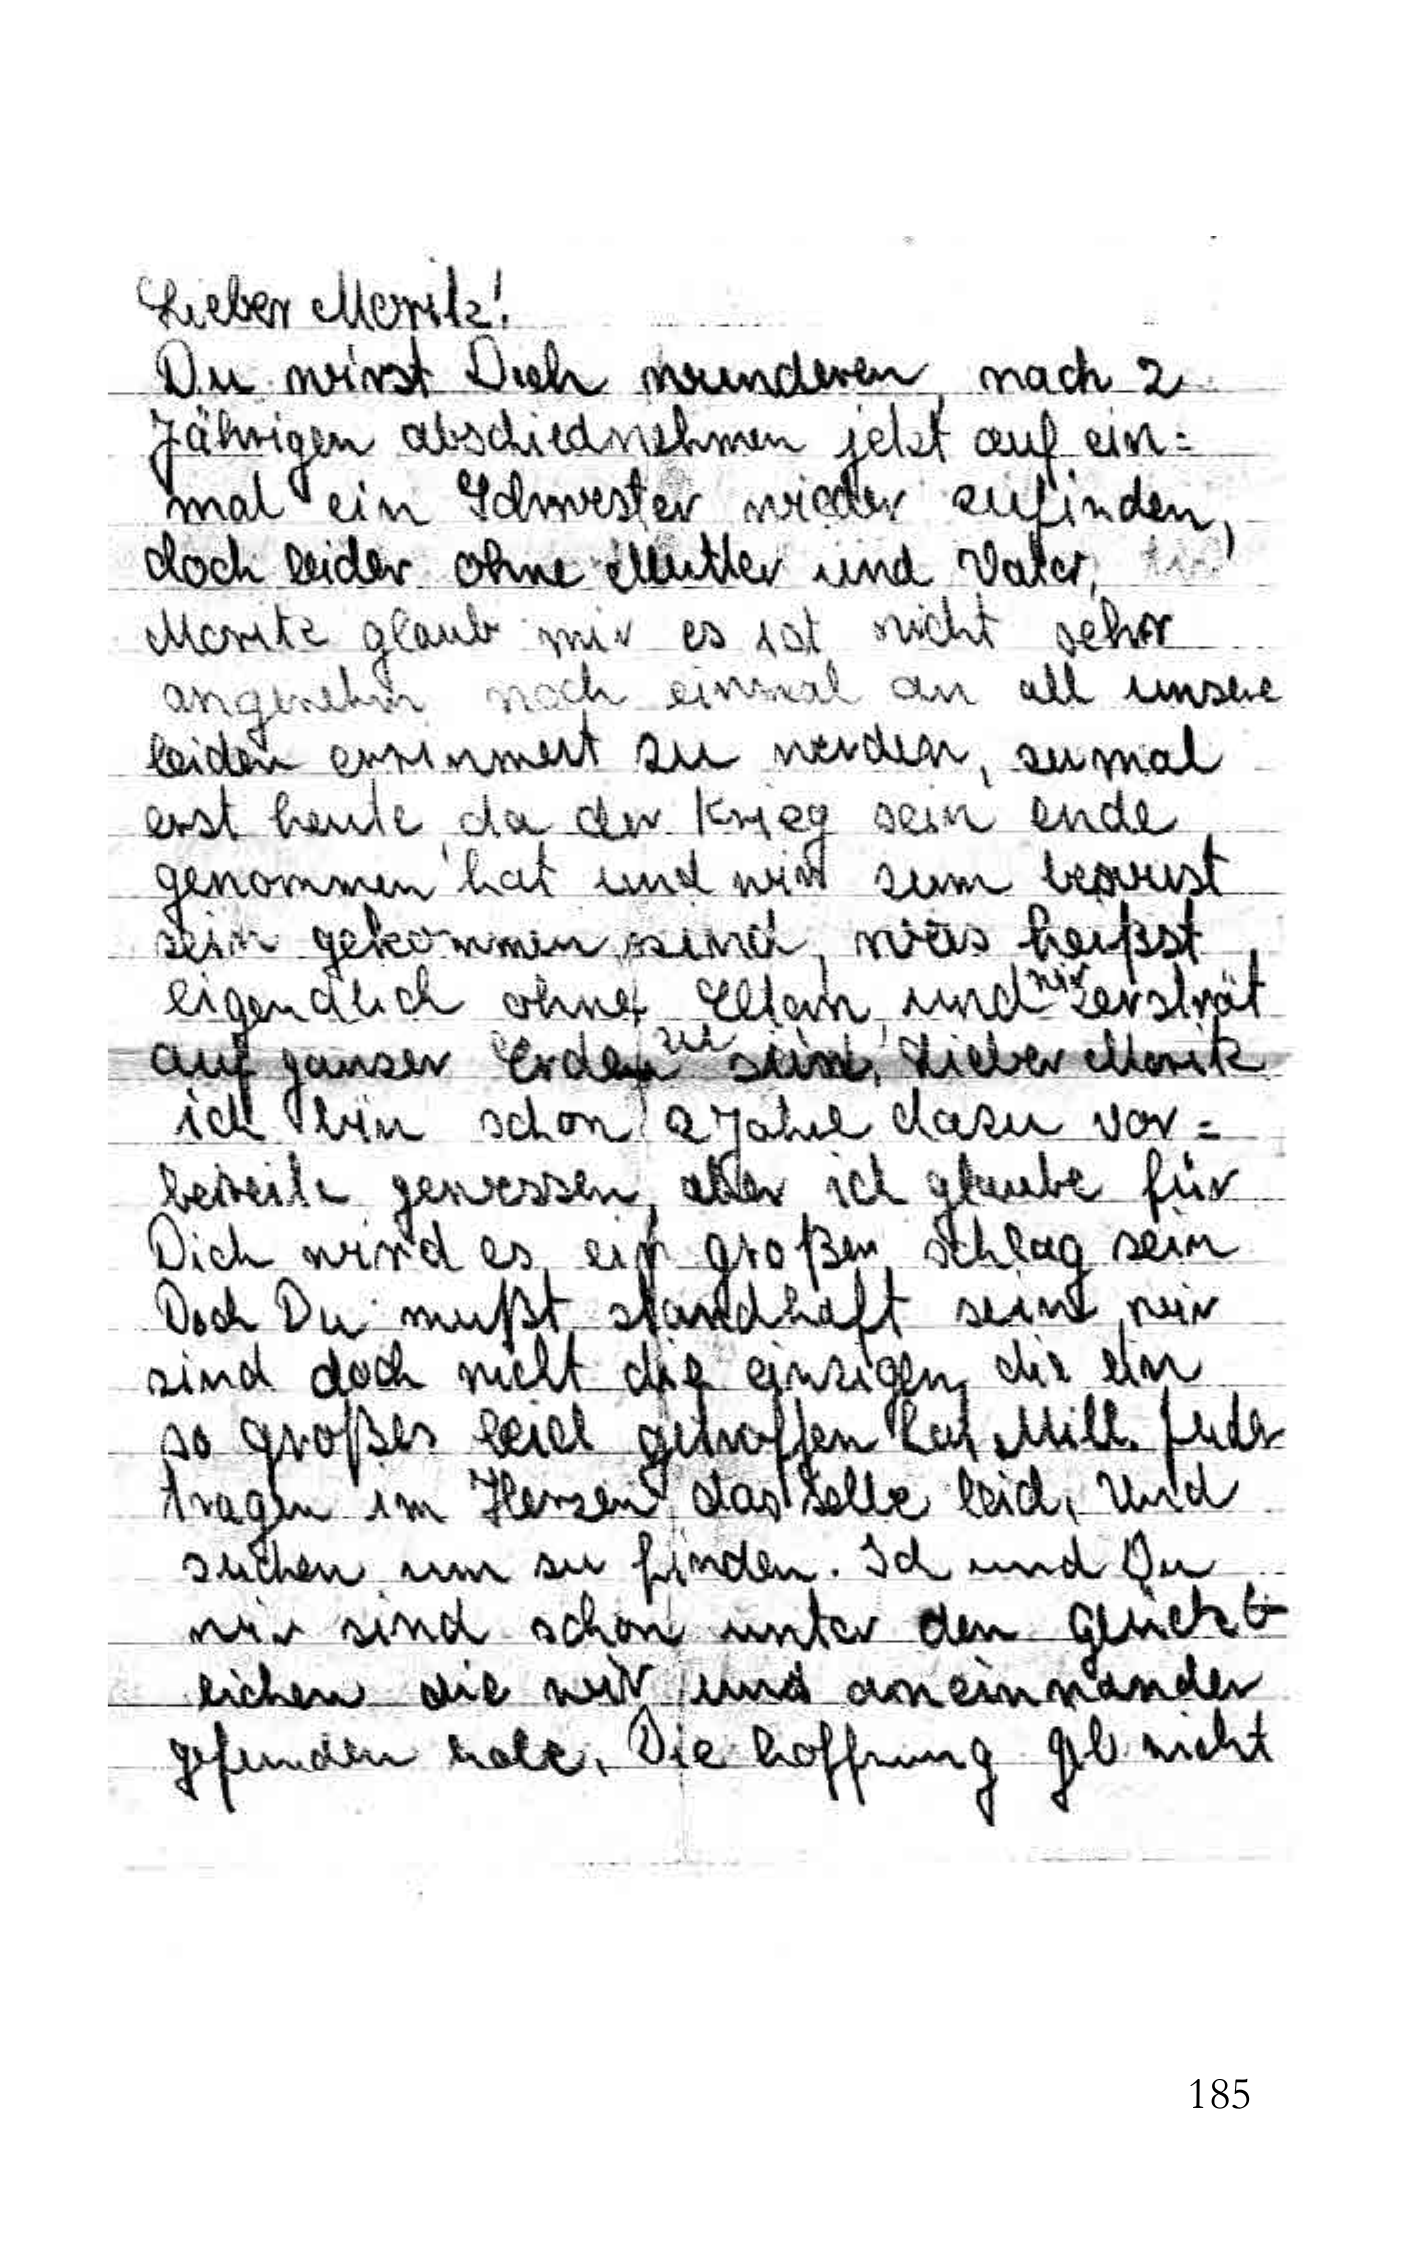 Lieber Moritz!
Du wirst Dich wunderen, nach 2
Jährigen abschiednehmen jetzt auf ein=
mal ein Schwester wieder zufinden,
doch leider ohne Mutter und Vater,
Moritz glaub mir es ist nicht sehr
angenehm noch einmal an all unsere
leiden errinnert zu werden, zumal
erst heute da der Krieg sein ende
genommen hat und wir zum bewust
sein gekommen sind, was heißst
eigendlich ohne Eltern und wir zersträt
auf ganzer Erden zu sein, Lieber Moritz
ich bin schon 2 Jahre dazu vor=
bereite gewessen, aber ich glaube für
Dich wird es ein großen schlag sein
Doch Du mußt standhaft sein wir
sind doch nicht die einzigen die ein
so großes leid getroffen hat, Mill. Juden
tragen im Herzen das selbe leid, Und
suchen um zu finden. Ich und Du
wir sind schon unter den glückl
lichen die wir uns aneinnander
gefunden habe. Die hoffnung geb nicht
185